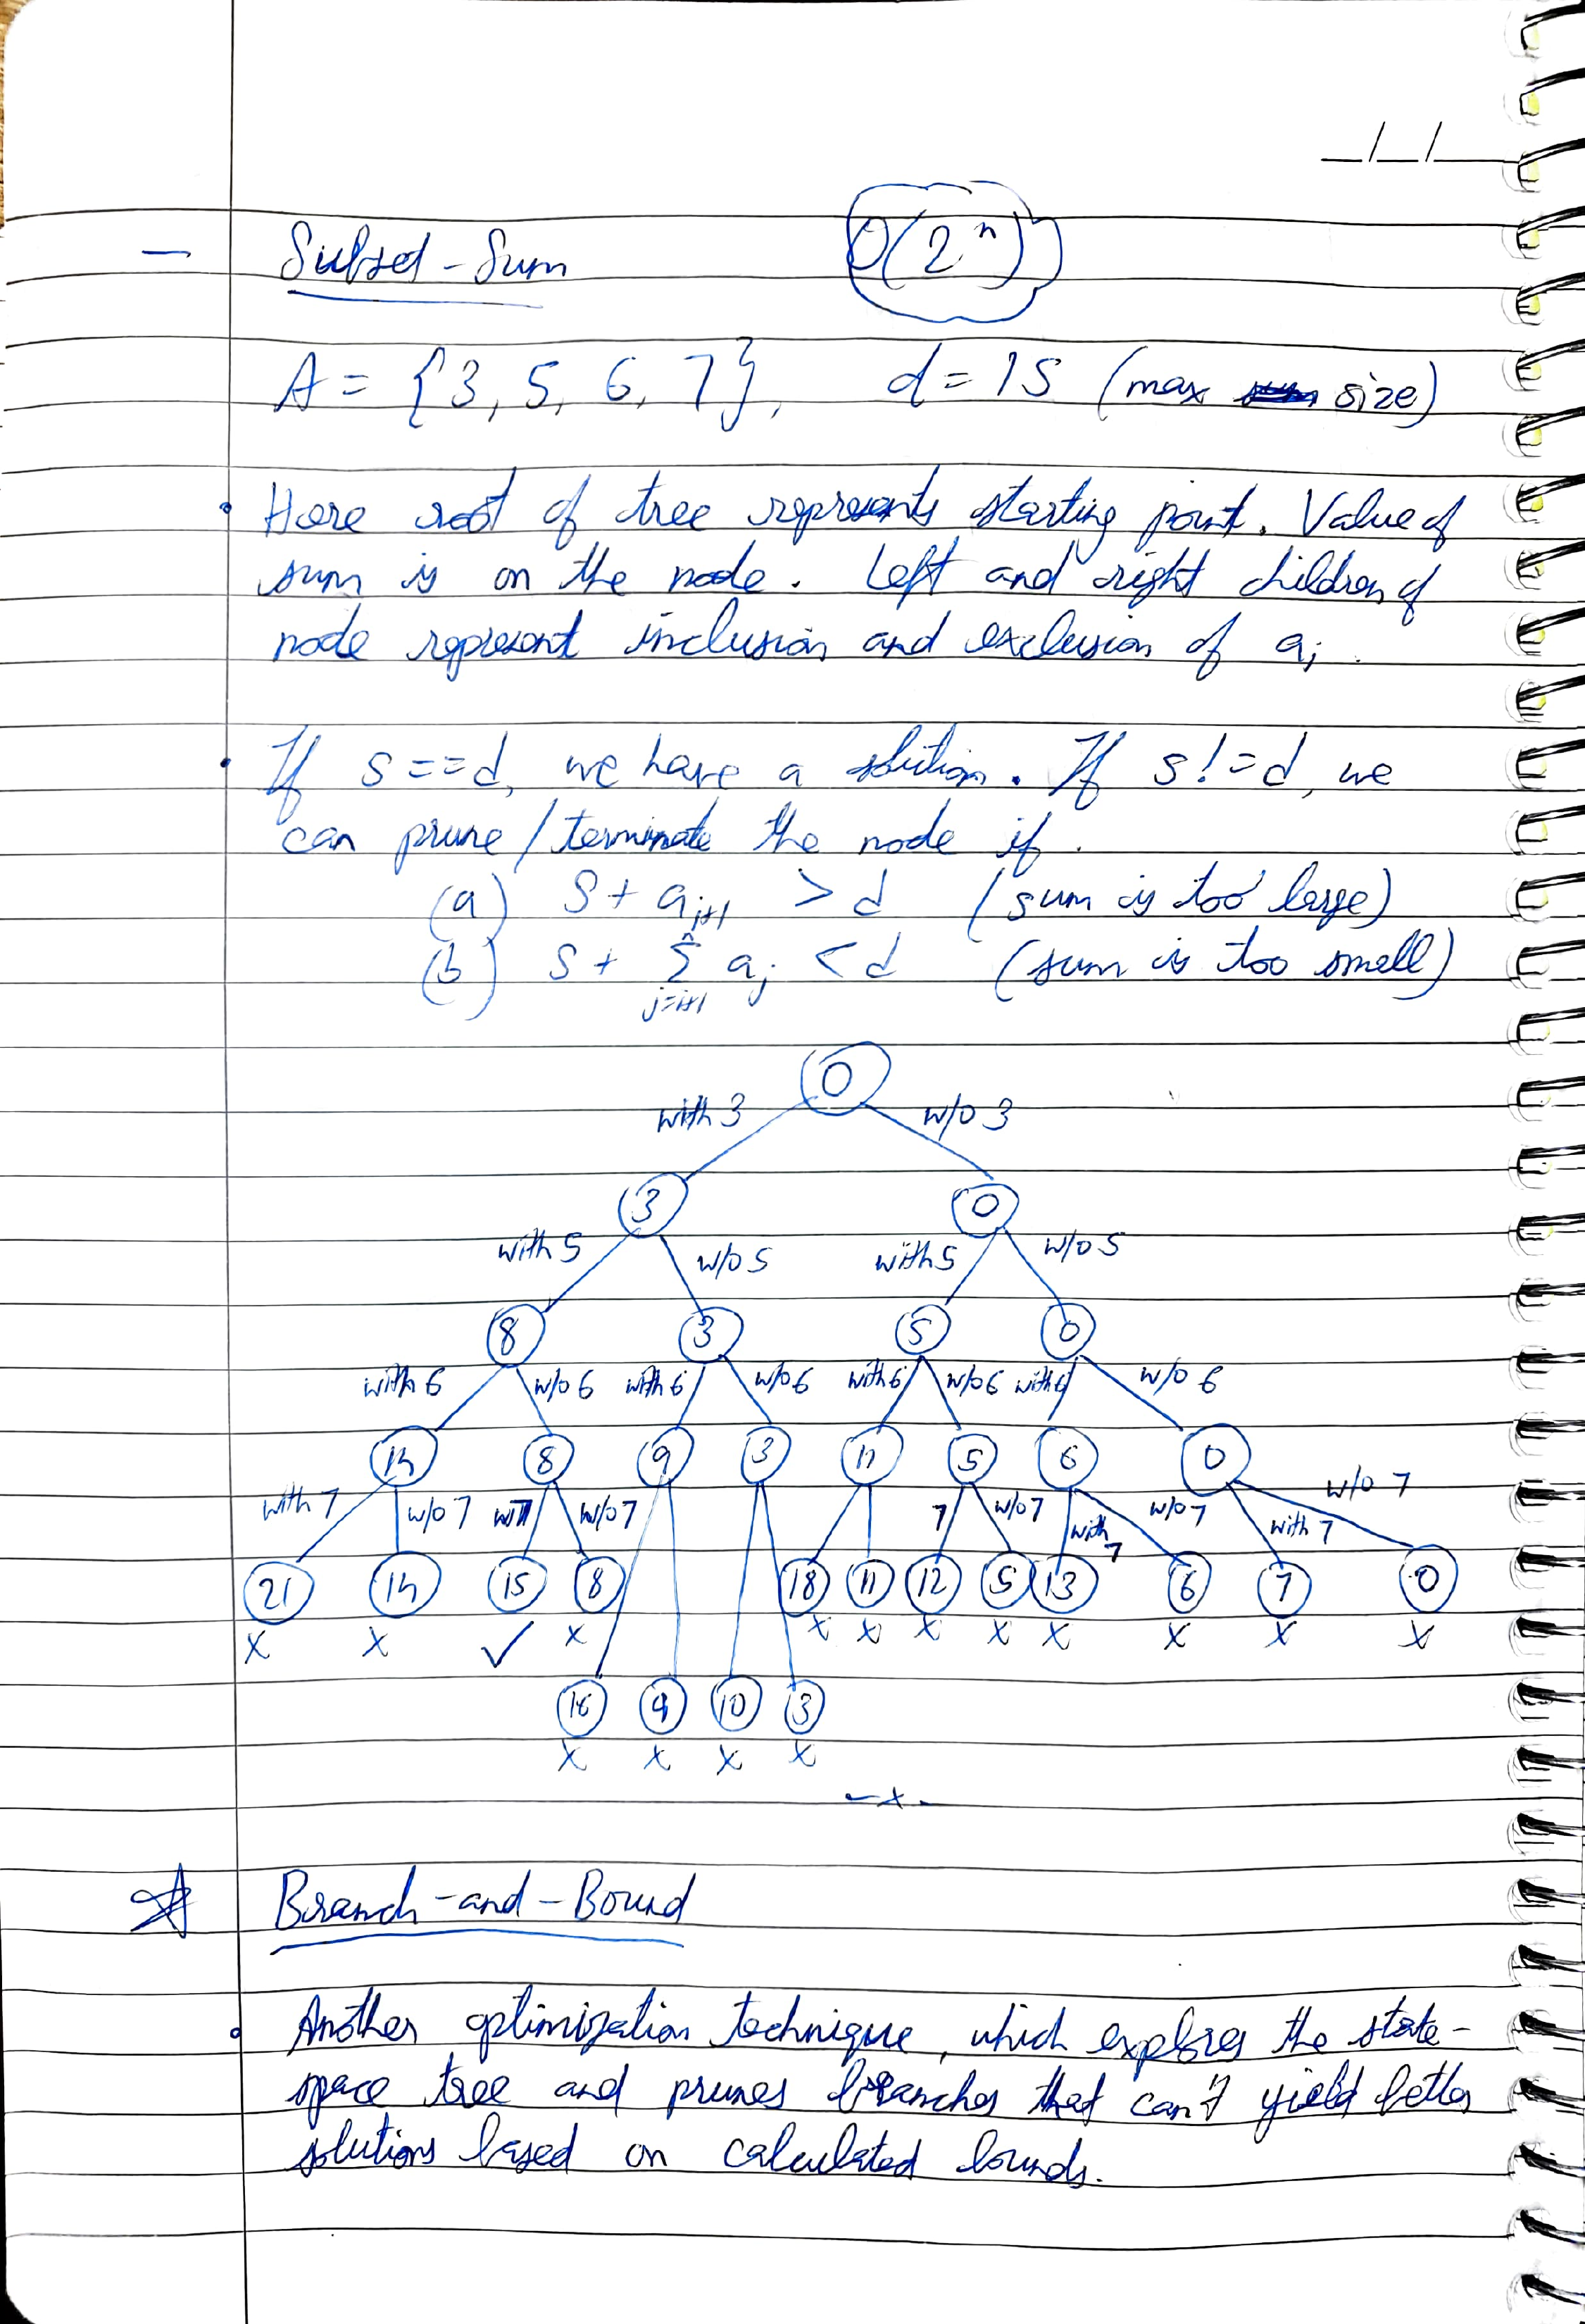 _/_/_
– Subset-Sum O(2^n)
A = {3, 5, 6, 7}, d = 15 (max size)
• Here root of tree represents starting point. Value of
sum is on the node. Left and right children of
node represent inclusion and exclusion of ai.
• If s==d, we have a solution. If s!=d, we
can prune/terminate the node if.
(a) S + a_{i+1} > d (sum is too large)
(b) S + Σ_{j=i+1}^{n} a_j < d (sum is too small)
0
with 3 w/o 3
3 0
with 5 w/o 5 with 5 w/o 5
8 3 5 0
with 6 w/o 6 with 6 w/o 6 with 6 w/o 6 with 6 w/o 6
14 8 9 3 11 5 6 0
with 7 w/o 7 w/o 7 7 w/o 7 with 7 w/o 7 with 7 w/o 7
21 14 15 8 18 11 12 5 13 6 7 0
x x ✓ x x x x x x x x x
16 9 10 3
x x x x
–x–
☆ Branch-and-Bound
• Another optimization technique, which explores the state-
space tree and prunes branches that can't yield better
solutions based on calculated bounds.